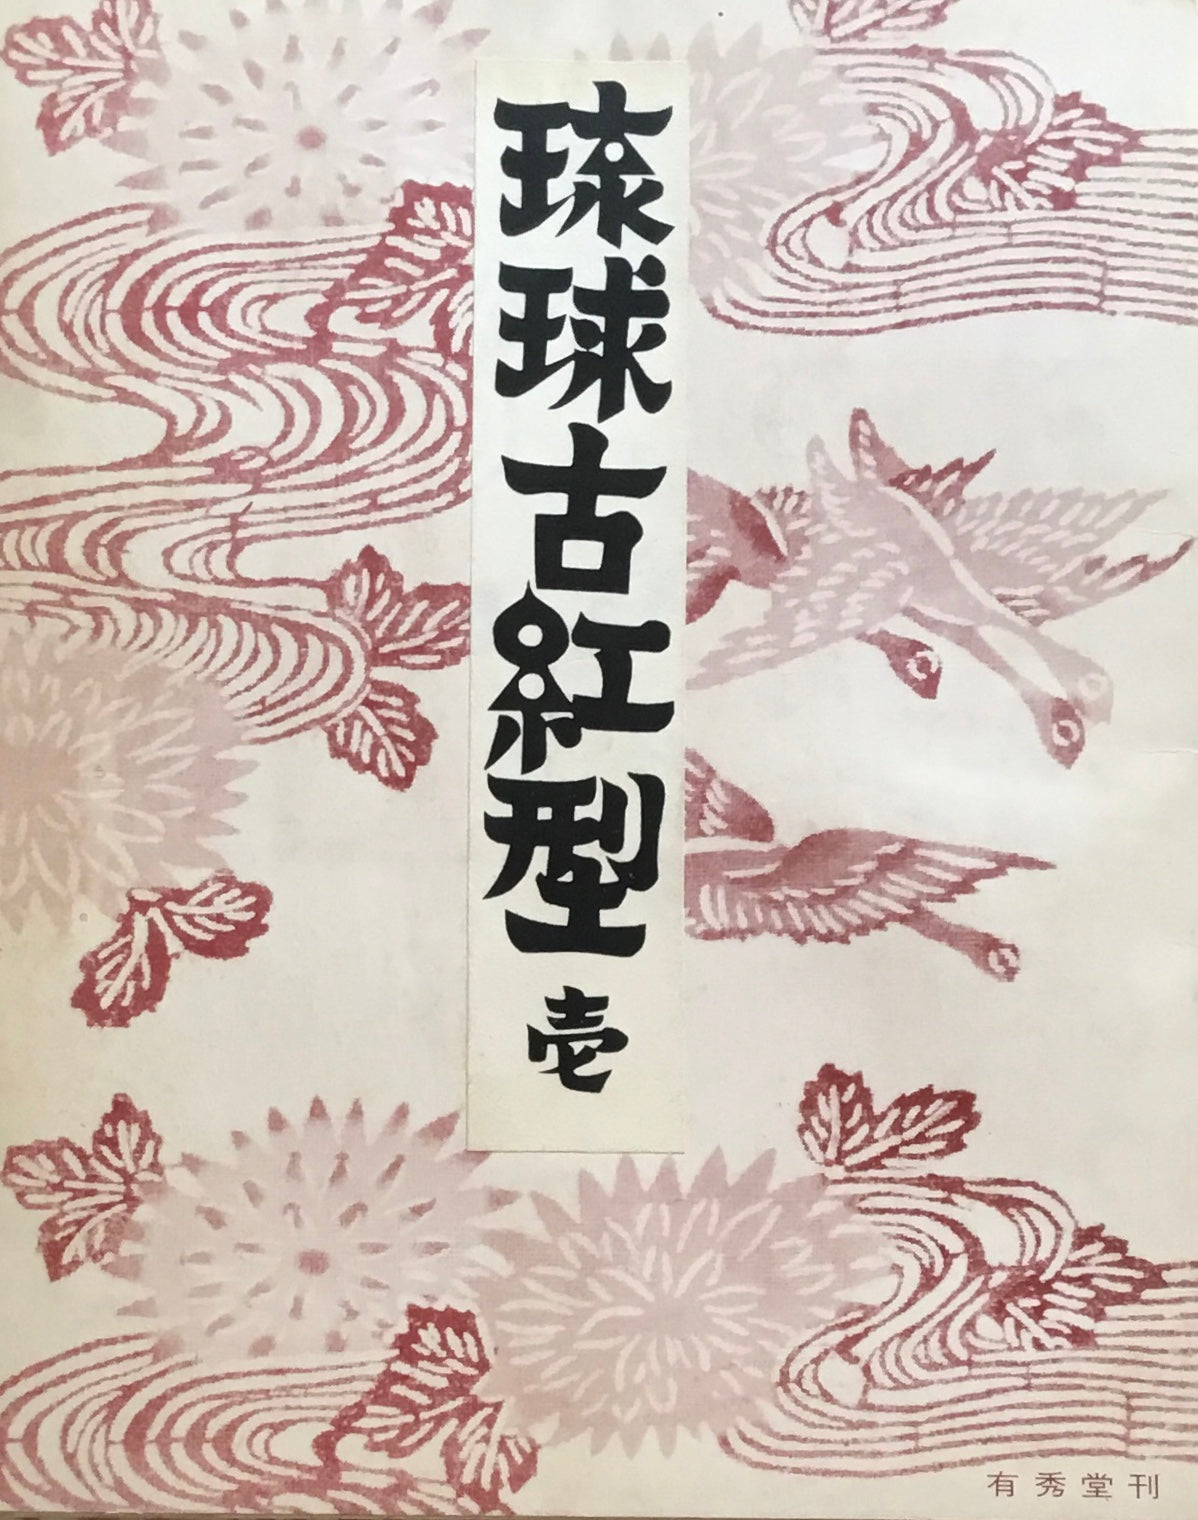 琉球古紅型 壱
有秀堂刊